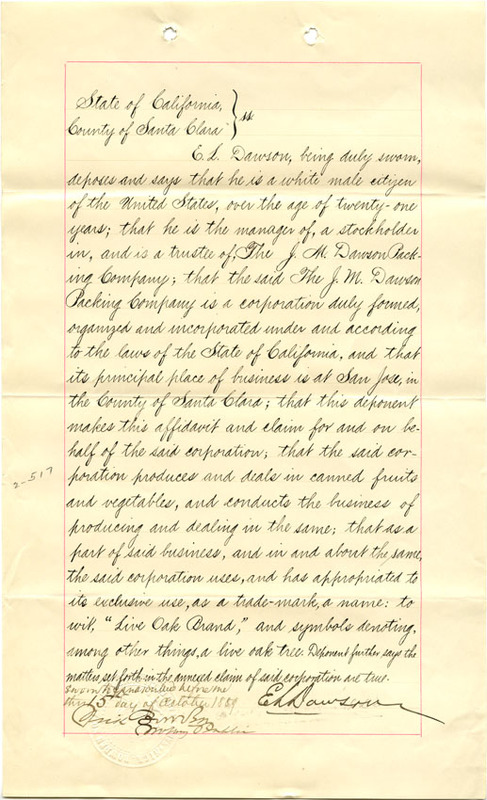 State of California,
County of Santa Clara } ss
E. L. Dawson, being duly sworn,
deposes and says that he is a white male citizen
of the United States, over the age of twenty-one
years; that he is the manager of, a stockholder
in, and is a trustee of, The J. M. Dawson Pack-
ing Company; that the said The J. M. Dawson
Packing Company is a corporation duly formed,
organized and incorporated under and according
to the laws of the State of California, and that
its principal place of business is at San Jose, in
the County of Santa Clara; that this deponent
makes this affidavit and claim for and on be-
half of the said corporation; that the said cor-
poration produces and deals in canned fruits
and vegetables, and conducts the business of
producing and dealing in the same; that as a
part of said business, and in and about the same,
the said corporation uses, and has appropriated to
its exclusive use, as a trade-mark, a name: to
wit, "Live Oak Brand," and symbols denoting,
among other things, a live oak tree. Deponent further says the
matters set forth in the annexed claim of said corporation are true.
2-517
Sworn to and subscribed before me
this 15th day of October 1889
E. L. Dawson
Notary Public